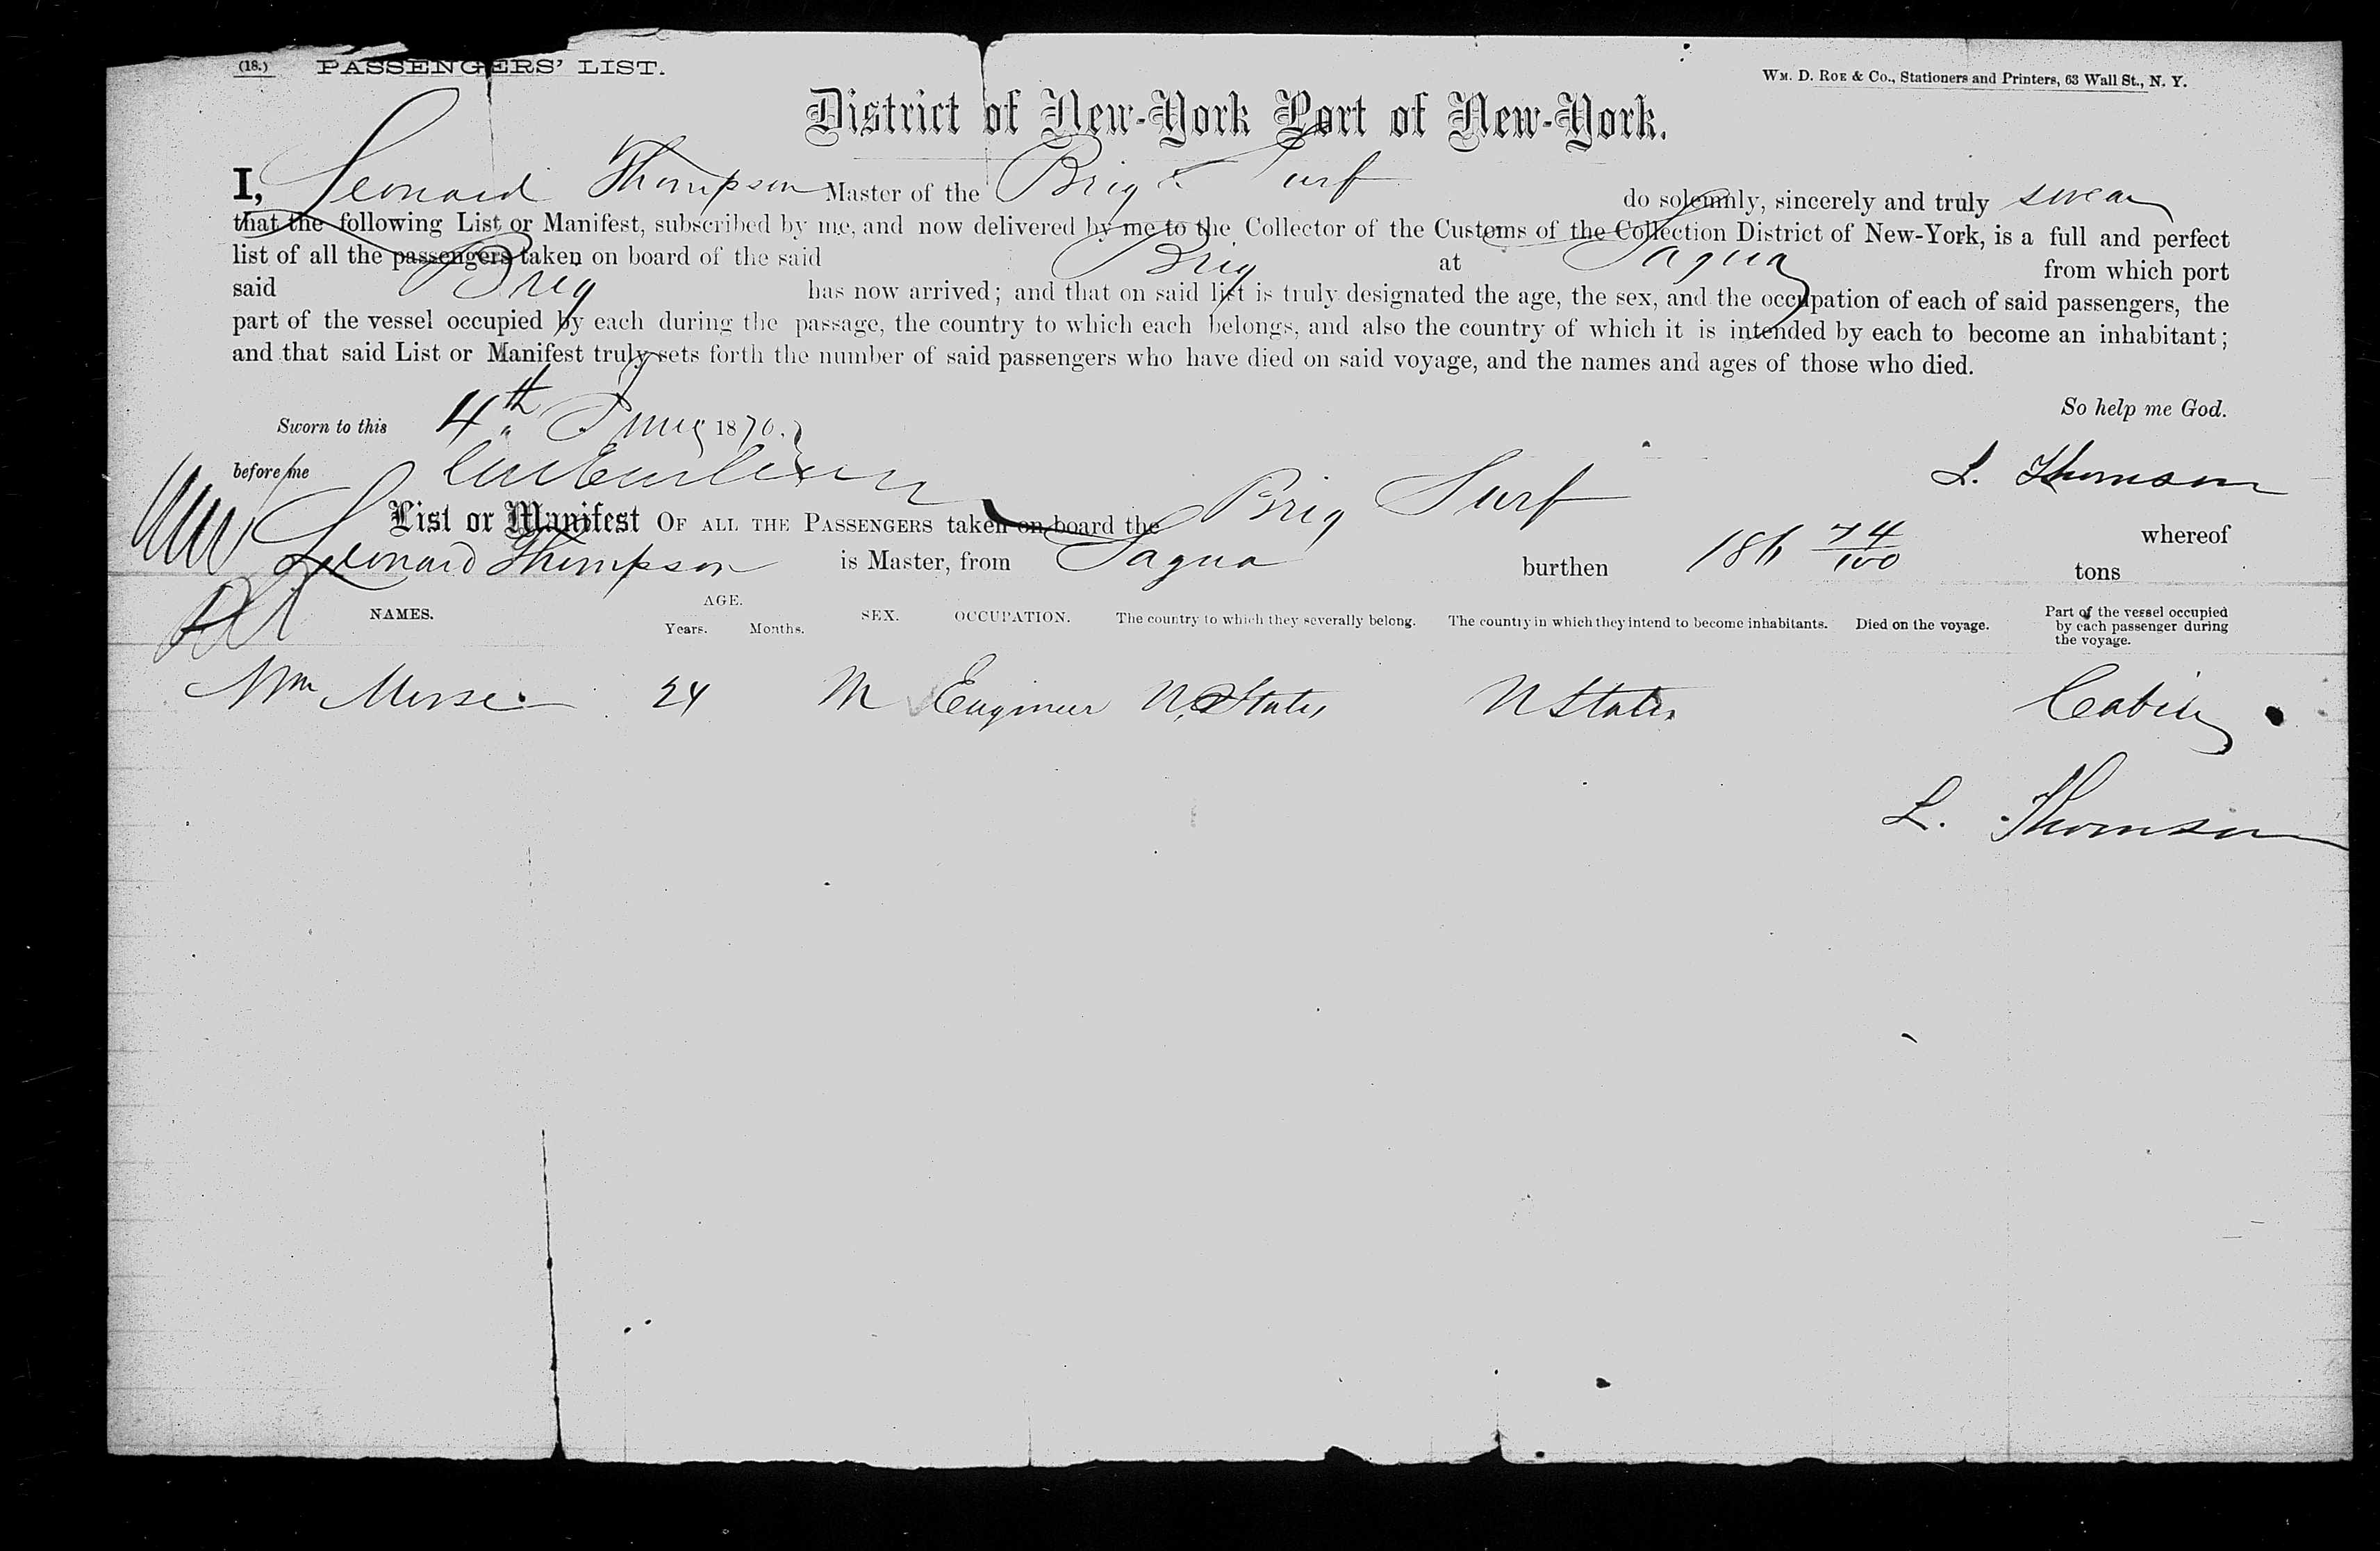 (18.) PASSENGERS' LIST.
WM. D. ROE & Co., Stationers and Printers, 63 Wall St., N. Y.
District of New-York Port of New-York.
I, Leonard Thompson Master of the Brig Surf do solemnly, sincerely and truly swear
that the following List or Manifest, subscribed by me, and now delivered by me to the Collector of the Customs of the Collection District of New-York, is a full and perfect
list of all the passengers taken on board of the said Brig at Sagua from which port
said Brig has now arrived; and that on said list is truly designated the age, the sex, and the occupation of each of said passengers, the
part of the vessel occupied by each during the passage, the country to which each belongs, and also the country of which it is intended by each to become an inhabitant;
and that said List or Manifest truly sets forth the number of said passengers who have died on said voyage, and the names and ages of those who died.
So help me God.
Sworn to this 4th 1870.
before me
L. Thomson
List or Manifest OF ALL THE PASSENGERS taken on board the Brig Surf whereof
Leonard Thompson is Master, from Sagua burthen 186 74/100 tons
NAMES. AGE. Years. Months. SEX. OCCUPATION. The country to which they severally belong. The country in which they intend to become inhabitants. Died on the voyage. Part of the vessel occupied by each passenger during the voyage.
Wm 24 M Engineer U States U States Cabin
L. Thomson